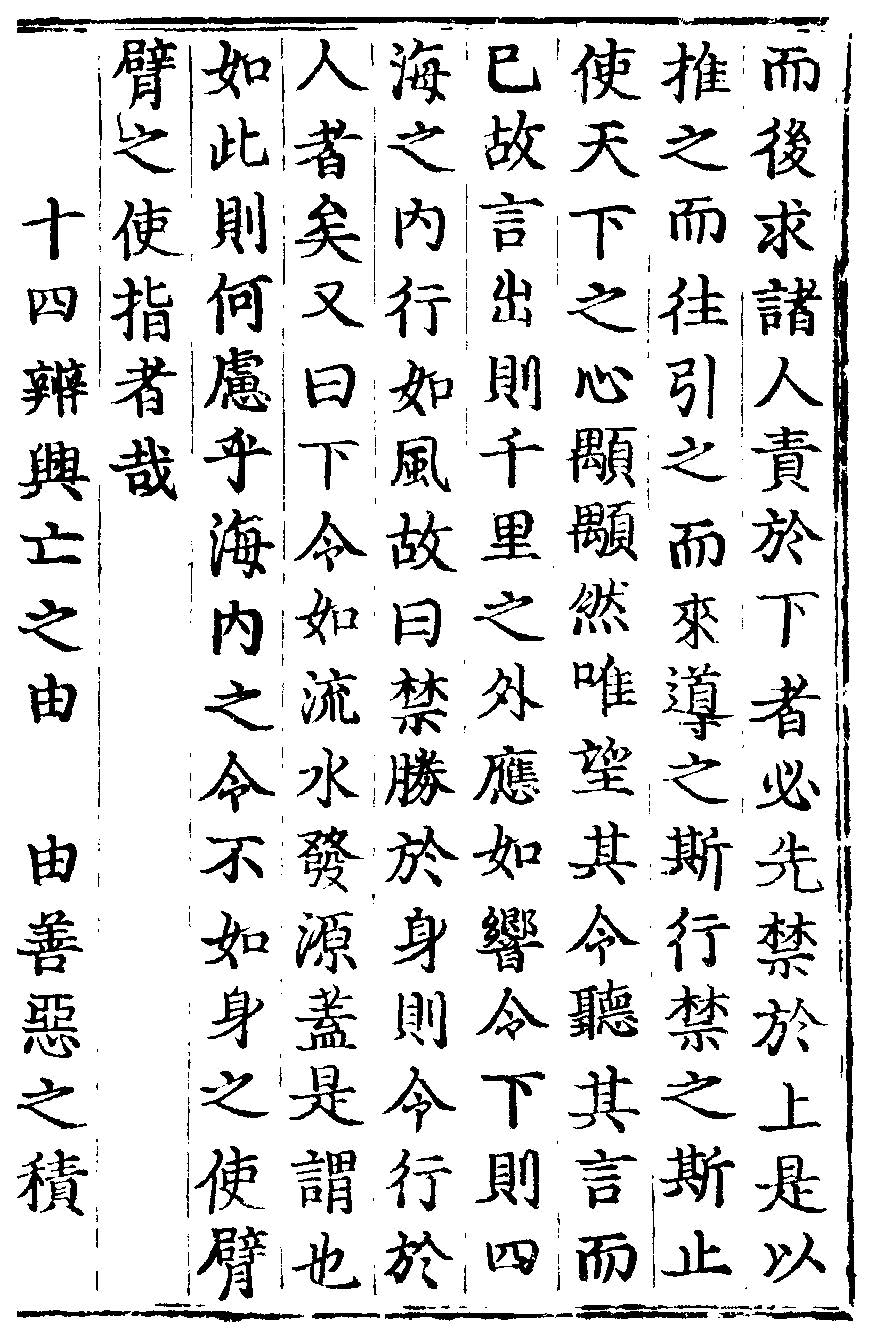 而後求諸人責於下者必先禁於上是以
推之而往引之而來導之斯行禁之斯止
使天下之心顒顒然唯望其令聽其言而
已故言出則千里之外應如響令下則四
海之内行如風故曰禁勝於身則令行於
人者矣又曰下令如流水發源蓋是謂也
如此則何慮乎海内之令不如身之使臂
臂之使指者哉
十四辨興亡之由 由善惡之積